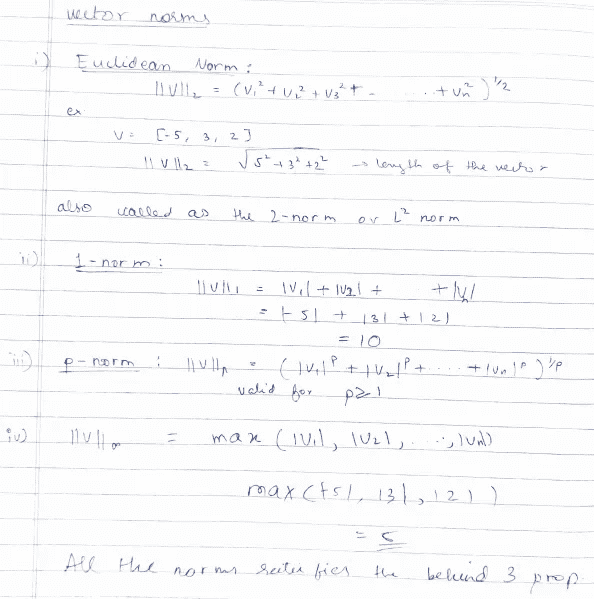 vector norms
i) Euclidean Norm :
||V||₂ = (V₁² + V₂² + V₃² + - ....+ Vn²)^1/2
ex
V = [-5, 3, 2]
||V||₂ = √5²+3²+2² → length of the vector
also called as the 2-norm or L² norm
ii) 1-norm :
||V||₁ = |V₁| + |V₂| + +|Vn|
= |-5| + |3| + |2|
= 10
iii) p-norm : ||V||p = (|V₁|^p + |V₂|^p + .... + |Vn|^p)^1/p
valid for p≥1
iv) ||V||∞ = max (|V₁|, |V₂|, ...., |Vn|)
max(|-5|, |3|, |2|)
= 5
All the norms satisfies the behind 3 prop.